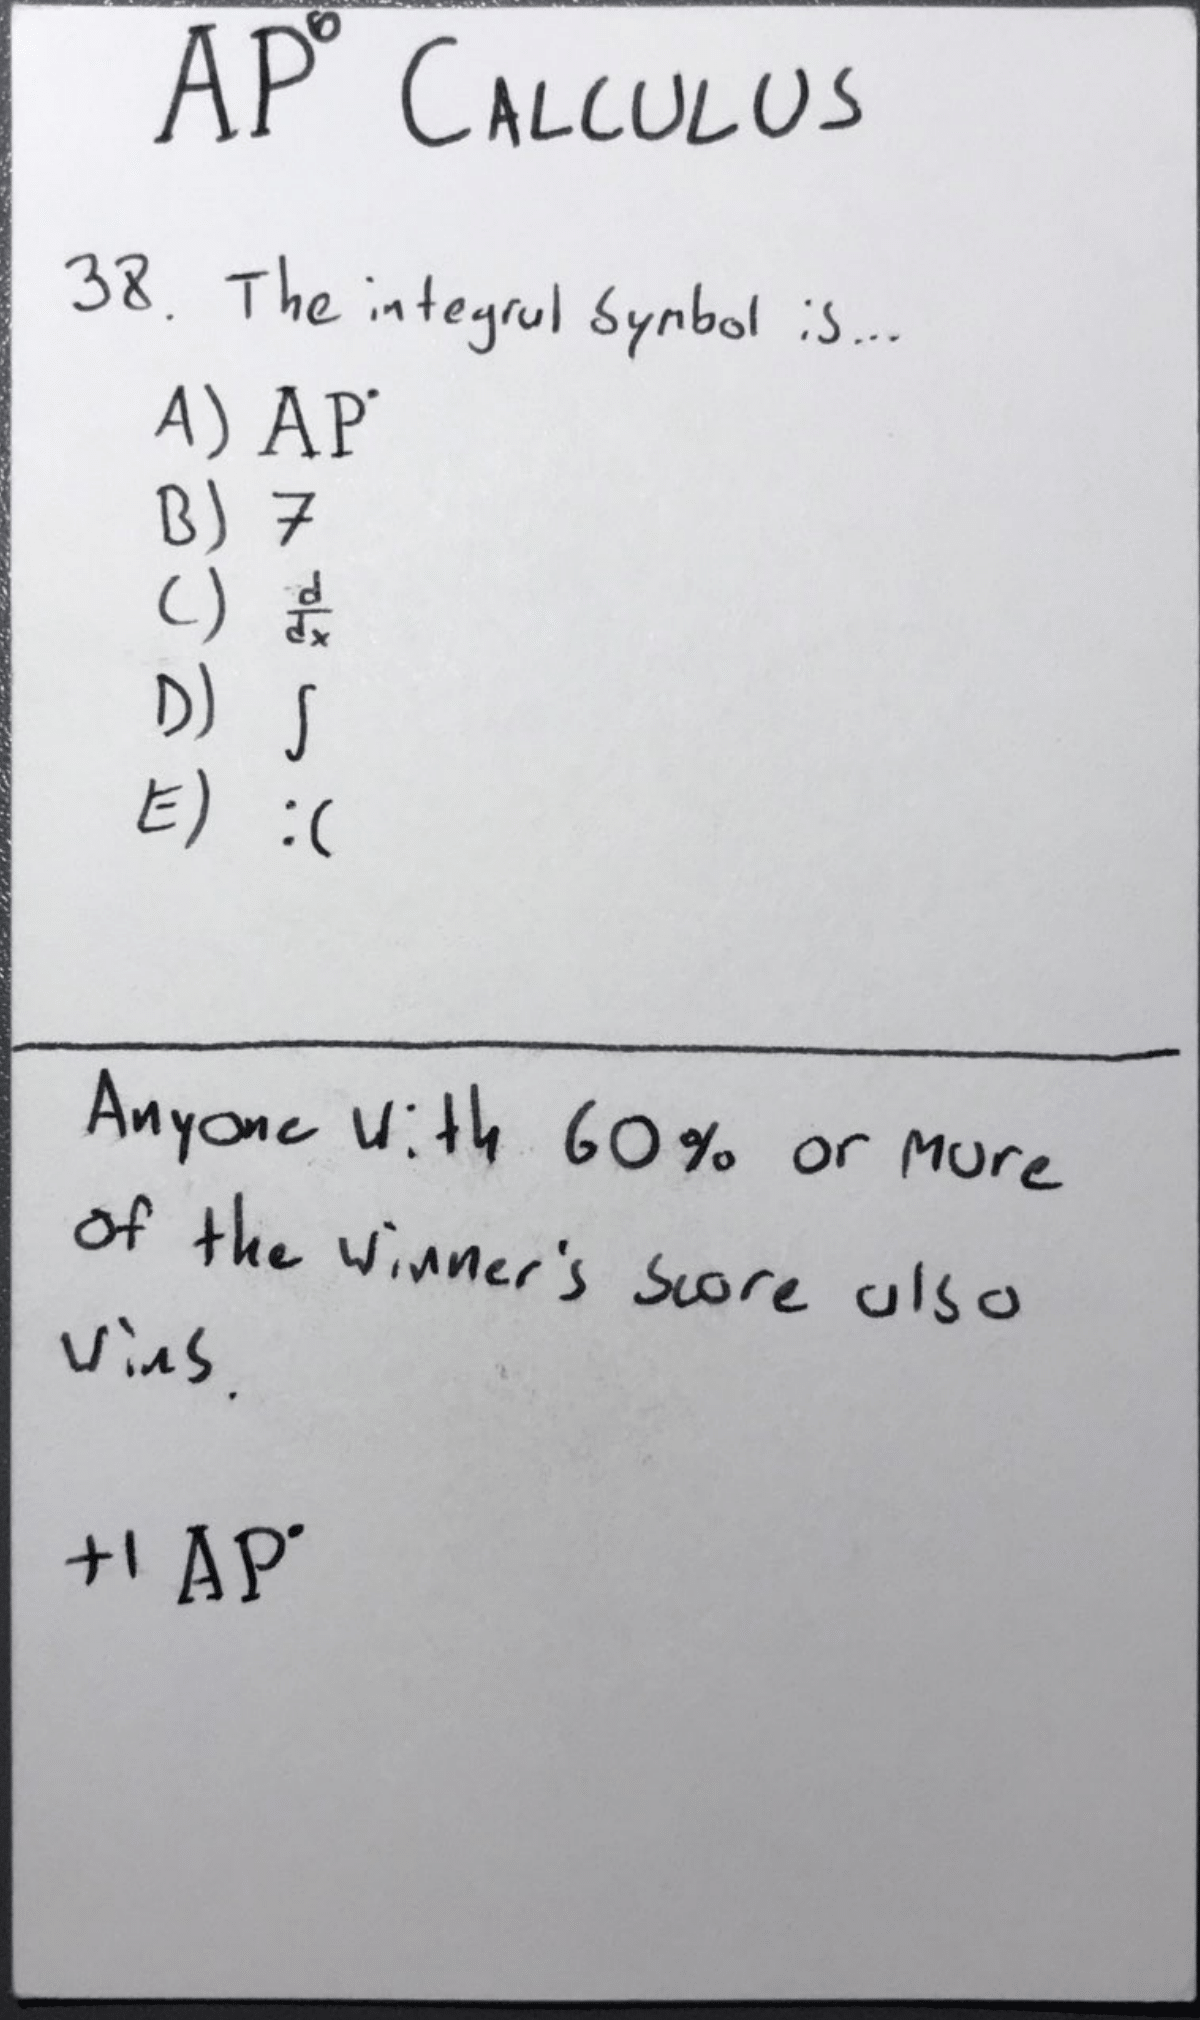 AP® CALCULUS
38. The integral symbol is...
A) AP®
B) 7
C) d/dx
D) ∫
E) :(
Anyone with 60% or more
of the winner's score also
wins.
+1 AP®